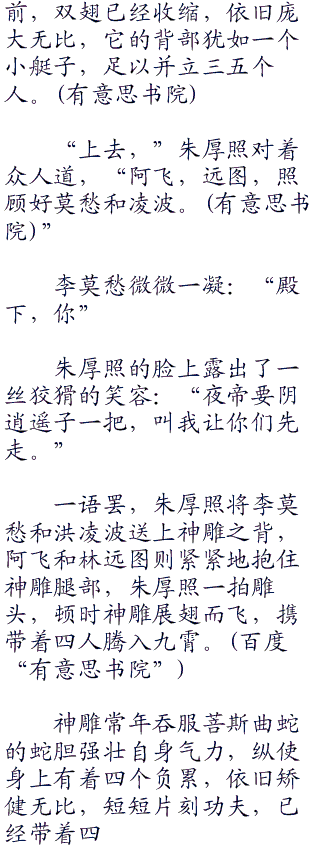 前，双翅已经收缩，依旧庞
大无比，它的背部犹如一个
小艇子，足以并立三五个
人。(有意思书院)
“上去，”朱厚照对着
众人道，“阿飞，远图，照
顾好莫愁和凌波。(有意思书
院)”
李莫愁微微一凝：“殿
下，你”
朱厚照的脸上露出了一
丝狡猾的笑容：“夜帝要阴
逍遥子一把，叫我让你们先
走。”
一语罢，朱厚照将李莫
愁和洪凌波送上神雕之背，
阿飞和林远图则紧紧地抱住
神雕腿部，朱厚照一拍雕
头，顿时神雕展翅而飞，携
带着四人腾入九霄。(百度
“有意思书院”)
神雕常年吞服菩斯曲蛇
的蛇胆强壮自身气力，纵使
身上有着四个负累，依旧矫
健无比，短短片刻功夫，已
经带着四